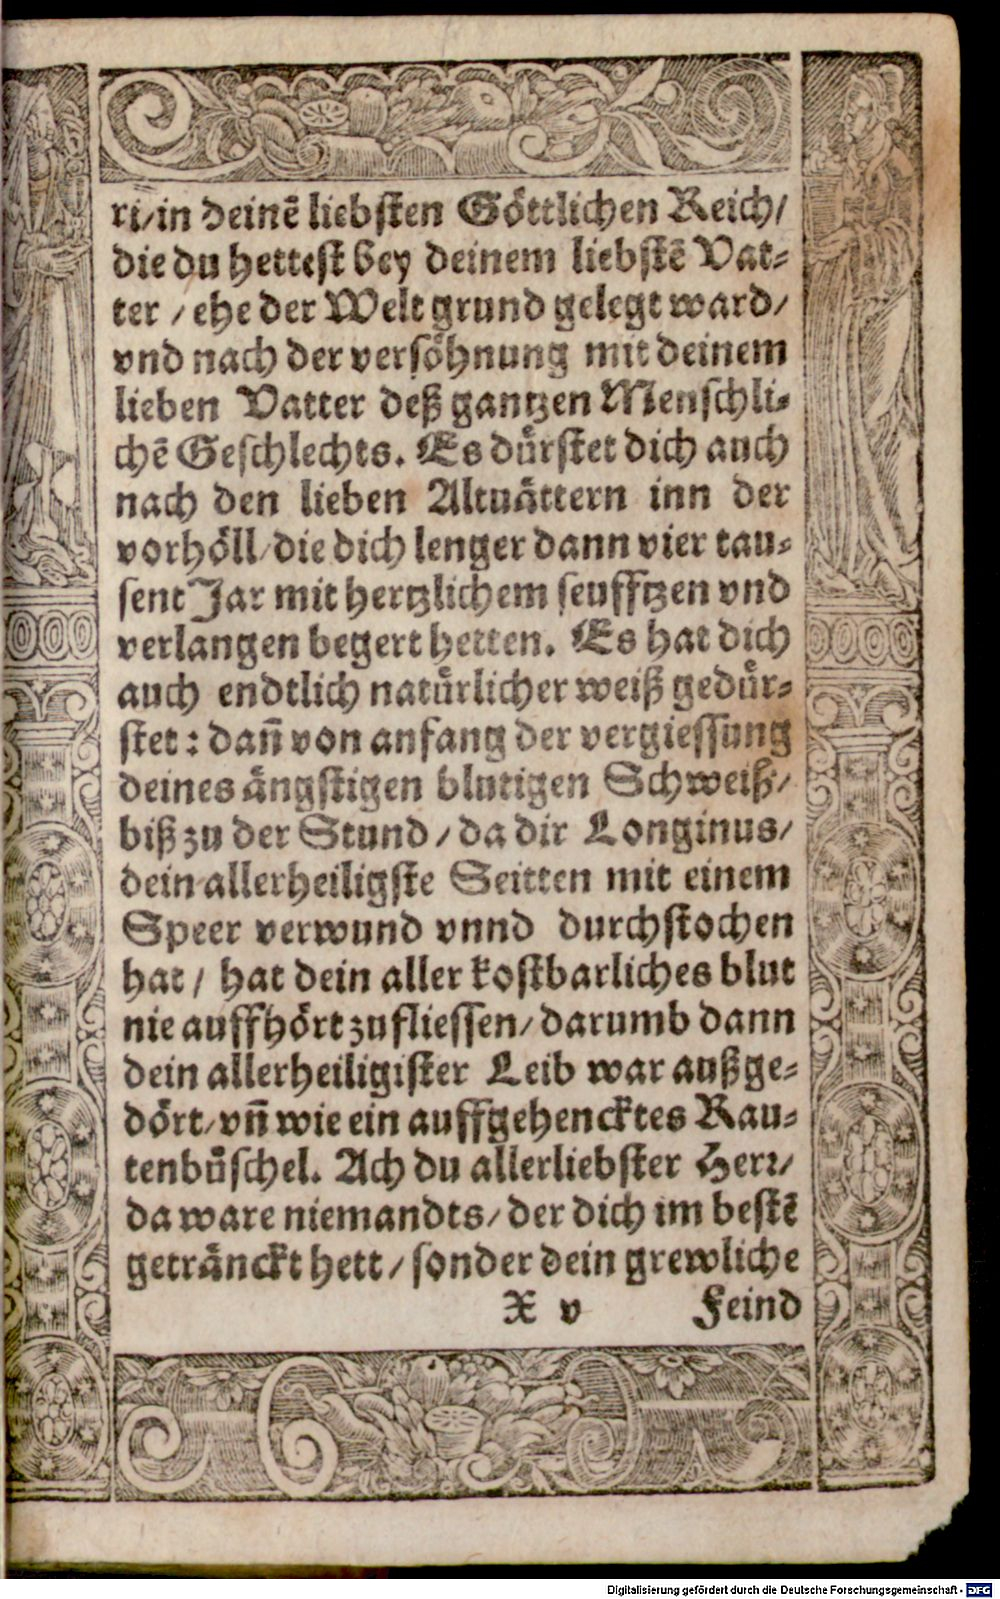 ri/in deinē liebsten Göttlichen Reich/
die du hettest bey deinem liebstē Vat-
ter / ehe der Welt grund gelegt ward/
vnd nach der versöhnung mit deinem
lieben Vatter deß gantzen Menschli-
chē Geschlechts. Es dürstet dich auch
nach den lieben Altuättern inn der
vorhöll/die dich lenger dann vier tau-
sent Jar mit hertzlichem seufftzen vnd
verlangen begert hetten. Es hat dich
auch endtlich natürlicher weiß gedür-
stet: dañ von anfang der vergiessung
deines ängstigen blutigen Schweiß/
biß zu der Stund/da dir Longinus/
dein allerheiligste Seitten mit einem
Speer verwund vnnd durchstochen
hat/ hat dein aller kostbarliches blut
nie auffhört zufliessen/darumb dann
dein allerheiligister Leib war außge-
dört/vñ wie ein auffgehencktes Rau-
tenbüschel. Ach du allerliebster Herr/
da ware niemandts/der dich im bestē
getränckt hett/sonder dein grewliche
X v Feind
Digitalisierung gefördert durch die Deutsche Forschungsgemeinschaft - DFG